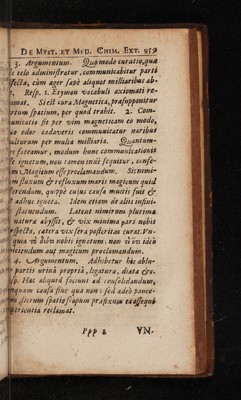 DE MYST. ET MED. CHIM. EXT. 959
3. Argumentum. Quo modo curatio, qua
telo administratur, communicabitur parti
fecta, cùm ager sæpè aliquot milliaribus ab-
? Resp. 1. Etymon vocabuli axiomati re-
amat. Si est cura Magnetica, præsupponitur
rtum spatium, per quod trahit. 2. Com-
unicatio fit per vim magneticam eo modo,
uo odor cadaveris communicatur naribus
ulturum per multa milliaria. Quantum-
is fateamur, modum hunc communicationis
se ignotum, non tamen inde sequitur, conse-
Magicum esse proclamandum. Sic nimi-
m fluxum & refluxum maris magicum quid
erendum, quippè cujus causa multis fuit &
adhuc ignota. Idem etiam de aliis infini-
statuendum. Latent nimirum plurima
naturæ abyssô, & vix maxima pars nobis
rspecta, cætera vix sera posteritas curat. Vn-
qua τὸ nobis ignotum, non
ntinendum aut magicum proclamandum.
4. Argumentum. Adhibetur hîc ablu-
partis urinâ propriâ, ligatura, diæta &c.
sp. Hæc aliquid faciunt ad consolidandum,
nquam causa sine qua non: sed adeò tanto-
dierum spatio scopum præfixum ea assequi
perientia reclamat.
Ppp 2 VN-